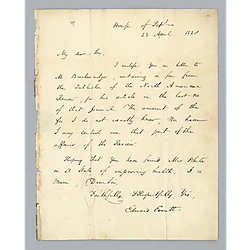 House of Rep's
23 April 182
My dear Sir,
I enclose you a letter to
Mr. enclosing a fee from
the Publisher of the North American
Review, for his article in the last No
of that Journal. The amount of the
fee I do not exactly know, nor have
I any control over that part of the
affairs of the Review.
Hoping that you have found Mrs White
in a State of improving health, I am
Dear Sir,
Faithfully & Respectfully Yrs,
Edward Everett.